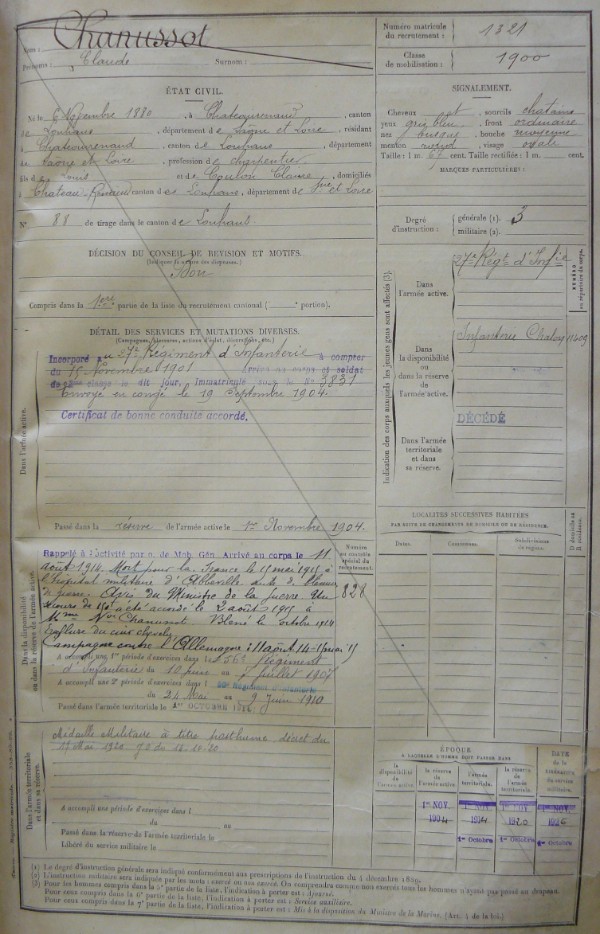 Nom :
Chanussot
Prénoms : Claude Surnom :
Numéro matricule
du recrutement : 1321
Classe
de mobilisation : 1900
ÉTAT CIVIL.
Né le 6 Novembre 1880, à Chateaurenaud, canton
de Louhans, département de Saône et Loire, résidant
à Chateaurenaud, canton de Louhans, département
de Saône et Loire, profession de charpentier
fils de Louis et de Coulon Claire, domiciliés
à Chateau-Renaud canton de Louhans, département de Sne et Loire
N° 88 de tirage dans le canton de Louhans.
SIGNALEMENT.
Cheveux sourcils chatains
yeux gris bleu, front ordinaire
nez busqué, bouche moyenne
menton rond, visage ovale
Taille : 1 m. 67 cent. Taille rectifiée : 1 m. cent.
MARQUES PARTICULIÈRES :
Degré
d'instruction :
générale (1). 3
militaire (2).
DÉCISION DU CONSEIL DE RÉVISION ET MOTIFS.
Bon
Compris dans la 1ère partie de la liste du recrutement cantonal ( portion).
DÉTAIL DES SERVICES ET MUTATIONS DIVERSES.
(Campagnes, blessures, actions d'éclat, décorations, etc.)
Dans l'armée active.
Incorporé au 27e Régiment d'Infanterie à compter
du 15 Novembre 1901 soldat
de 2ème classe le dit jour. Immatriculé sous le N° 3831
Envoyé en congé le 19 Septembre 1904.
Certificat de bonne conduite accordé.
Passé dans la réserve de l'armée active le 1er Novembre 1904.
Indication des corps auxquels les jeunes gens sont affectés (3).
Dans
l'armée active.
27e Régt d'Infie
Dans
la disponibilité
ou
dans la réserve
de
l'armée active.
Infanterie Chalon
DÉCÉDÉ
Dans l'armée
territoriale
et dans
sa réserve.
NUMÉRO
au répertoire du corps.
LOCALITÉS SUCCESSIVES HABITÉES
PAR SUITE DE CHANGEMENTS DE DOMICILE OU DE RÉSIDENCE.
Dates.
Communes.
Subdivisions
de région.
D domicile
ou R résidence.
Dans la disponibilité
ou dans la réserve de l'armée active.
Rappelé à l'activité par o. de Mob. Gén. Arrivé au corps le 11
août 1914. Mort pour la France le 15 mai 1915 à
l'hopital militaire d'Abbeville
de guerre. Avis du Ministre de la guerre. Un
secours de 150f a été accordé le 2 août 1915 à
Mme Vve Chanussot. Blessé le octobre 1914
Eraflure du cuir chevelu
Campagne contre l'Allemagne : 11 août 14 - 15 mai 15
A accompli une 1re période d'exercices dans le 56e Régiment
d'Infanterie du 10 juin au 7 juillet 1907
A accompli une 2e période d'exercices dans l
du 24 Mai au 9 Juin 1910
Passé dans l'armée territoriale le 1er OCTOBRE
Numéro
au contrôle
spécial du
recrutement.
828
Dans l'armée territoriale
et dans sa réserve.
Médaille Militaire à titre posthume décret du
Mai 1920
A accompli une période d'exercices dans l
du au
Passé dans la réserve de l'armée territoriale le
Libéré du service militaire le
ÉPOQUE
À LAQUELLE L'HOMME DOIT PASSER DANS
la
disponibilité
de
l'armée active
la réserve
de
l'armée active.
l'armée
territoriale.
la réserve
de l'armée
territoriale.
DATE
de la
libération
du service
militaire.
1er NOV 1904
1914
1er Octobre
1920
1er Octobre
1926
1er Octobre
(1) Le degré d'instruction générale sera indiqué conformément aux prescriptions de l'instruction du 4 décembre 1889.
(2) L'instruction militaire sera indiquée par les mots : exercé ou non exercé.
Pour ceux compris dans la 6e partie de la liste, l'indication à porter est : Service auxiliaire.
Pour ceux compris dans la 7e partie de la liste, l'indication à porter est : Mis à la disposition du Ministre de la Marine. (Art. 4 de la loi.)